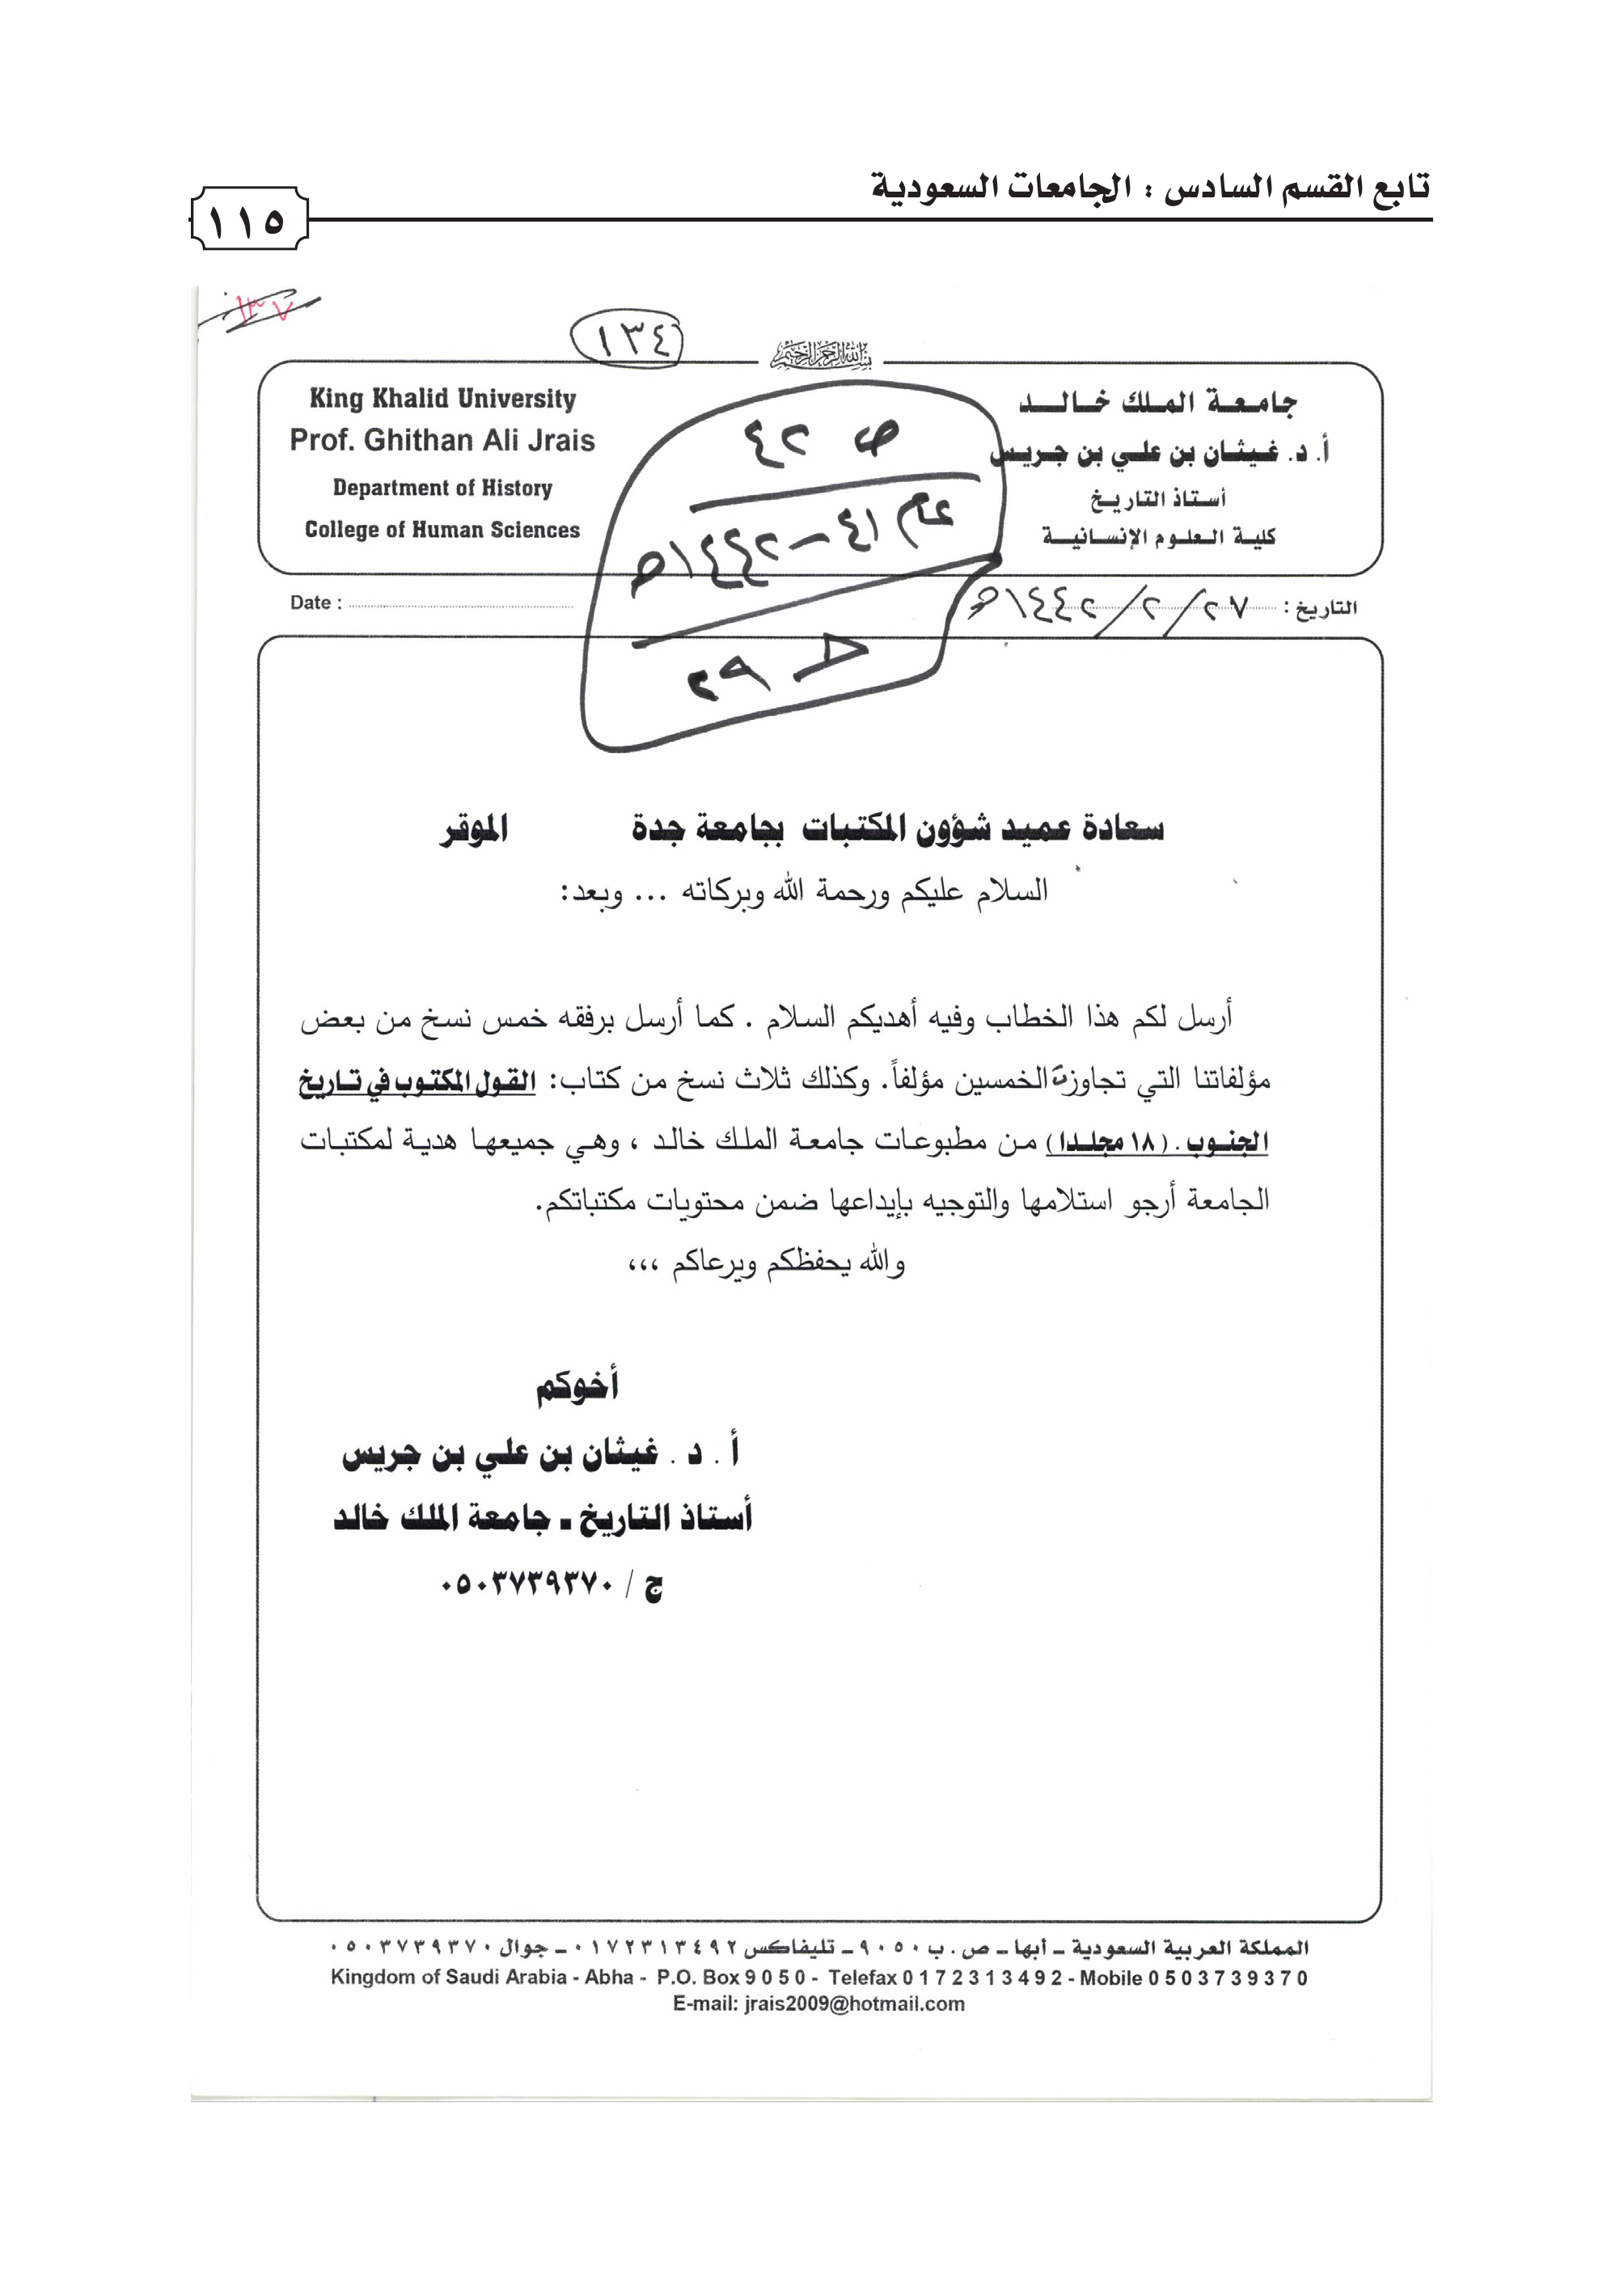 تابع القسم السادس : الجامعات السعودية
١١٥
١٣٧
١٣٤
بسم الله الرحمن الرحيم
جامعة الملك خالد
أ. د. غيثان بن علي بن جريس
أستاذ التاريخ
كلية العلوم الإنسانية
King Khalid University
Prof. Ghithan Ali Jrais
Department of History
College of Human Sciences
ص ٤٢
عام ٤١ – ١٤٤٢هـ
٢٩
التاريخ : ٢٧ / ٢ / ١٤٤٢هـ
Date :
سعادة عميد شؤون المكتبات بجامعة جدة الموقر
السلام عليكم ورحمة الله وبركاته ... وبعد:
أرسل لكم هذا الخطاب وفيه أهديكم السلام . كما أرسل برفقه خمس نسخ من بعض
مؤلفاتنا التي تجاوزت الخمسين مؤلفاً. وكذلك ثلاث نسخ من كتاب: القول المكتوب في تاريخ
الجنوب . (١٨ مجلدا) من مطبوعات جامعة الملك خالد ، وهي جميعها هدية لمكتبات
الجامعة أرجو استلامها والتوجيه بإيداعها ضمن محتويات مكتباتكم.
والله يحفظكم ويرعاكم ،،،
أخوكم
أ . د . غيثان بن علي بن جريس
أستاذ التاريخ ـ جامعة الملك خالد
ج / ٠٥٠٣٧٣٩٣٧٠
المملكة العربية السعودية ـ أبها ـ ص . ب ٩٠٥٠ ـ تليفاكس ٠١٧٢٣١٣٤٩٢ ـ جوال ٠٥٠٣٧٣٩٣٧٠
Kingdom of Saudi Arabia - Abha - P.O. Box 9 0 5 0 - Telefax 0 1 7 2 3 1 3 4 9 2 - Mobile 0 5 0 3 7 3 9 3 7 0
E-mail: jrais2009@hotmail.com